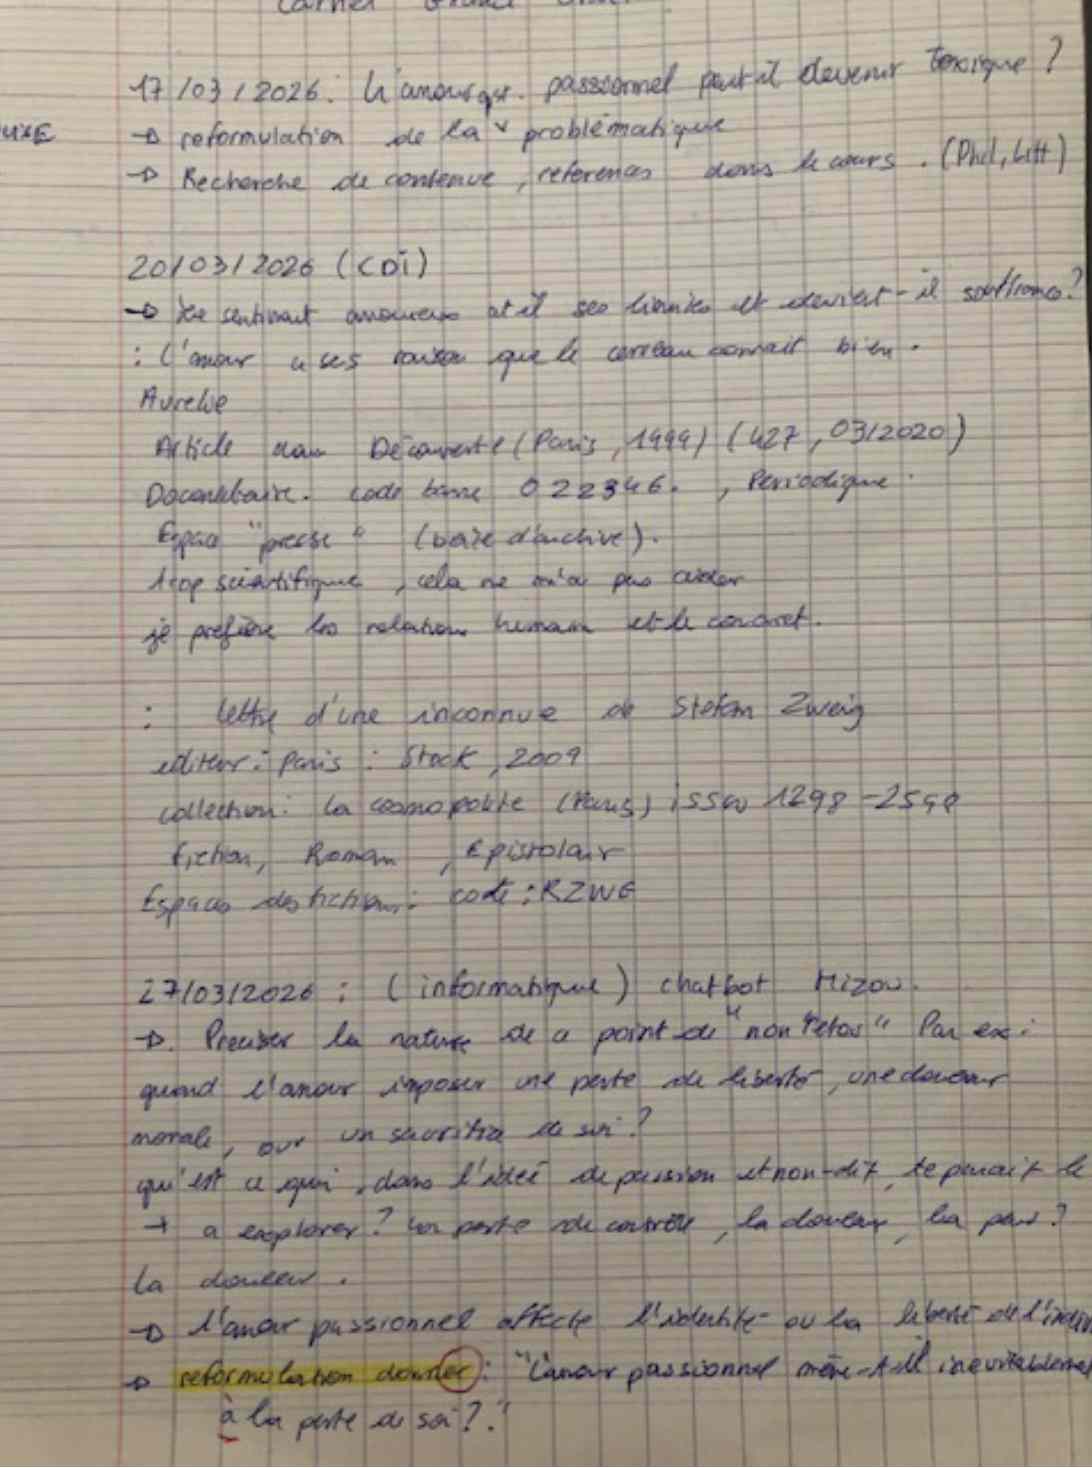 Carnet Grand Oral
17/03/2026: L'amour qu. passionnel peut il devenir toxique ?
→ reformulation de la problématique
→ Recherche de contenue, references dans le cours. (Phil, Litt)
20/03/2026 (CDI)
→ Le sentiment amoureux at il ses limites et devient-il souffrance?
: L'amour a ses raison que le cerveau connait bien.
Aurelie
Article dans Découverte (Paris, 1999) (427, 03/2020)
Documentaire. code barre 022346. , Periodique.
Espace "presse" (boite d'archive).
trop scientifique, cela ne m'a pas aider
je prefère les relations humain et le concret.
: lettre d'une inconnue de Stefan Zweig
editeur: Paris : Stock, 2009
collection: La cosmopolite (Paris) issn 1298-2598
fiction, Roman, Epistolair
Espaces des fictions: cote: RZWE
27/03/2026 : (informatique) chatbot Mizou.
→. Preciser la nature de ce point de "non retour" Par ex:
quand l'amour imposer une perte de liberté, une douleur
morale, our un sacrifice de soi?
qu'est ce qui, dans l'ideé de passion et non-dit, te parait le
+ a explorer? La perte de contrôle, la douleur, la peur?
la douleur.
→ l'amour passionnel affecte l'identité ou la liberté de l'indiv
→ reformulation donner: "L'amour passionnel mène-t-il inevitablement
à la perte de soi?."